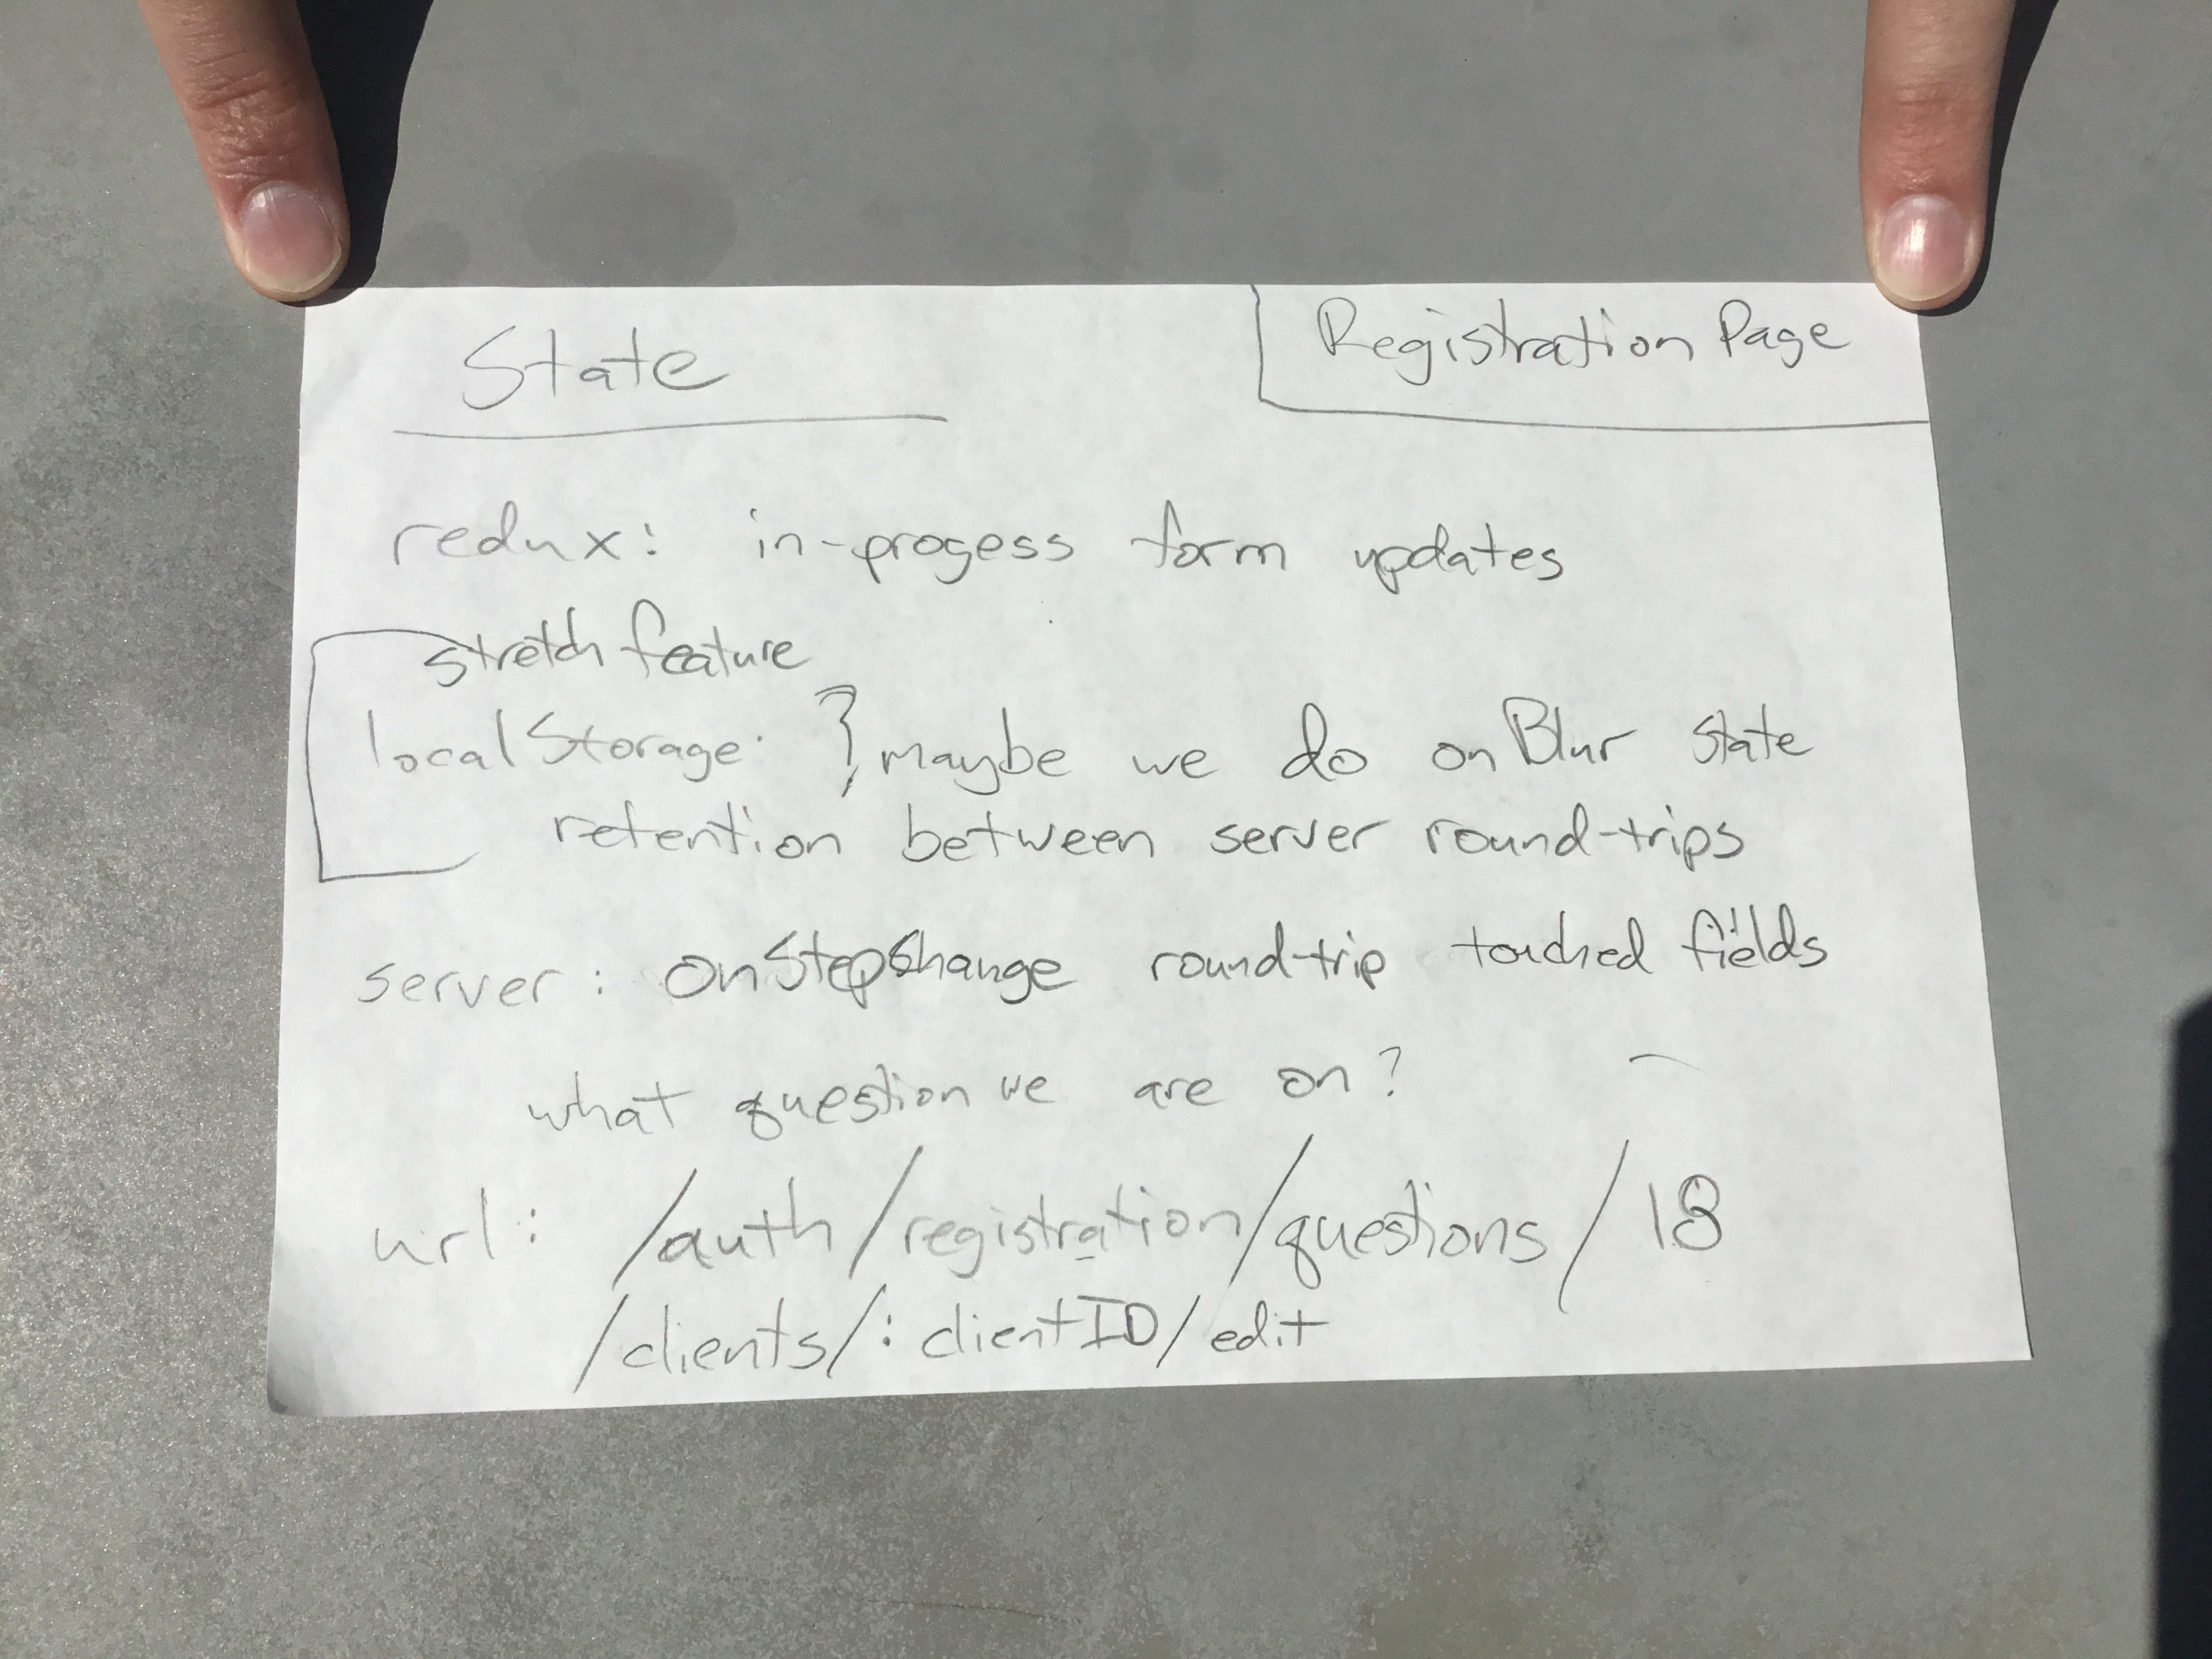 Registration Page
State
redux: in-progess form updates
stretch feature
localStorage: } maybe we do onBlur state
retention between server round-trips
server: onStepChange round-trip touched fields
what question we are on?
url: /auth/registration/questions/18
/clients/:clientID/edit